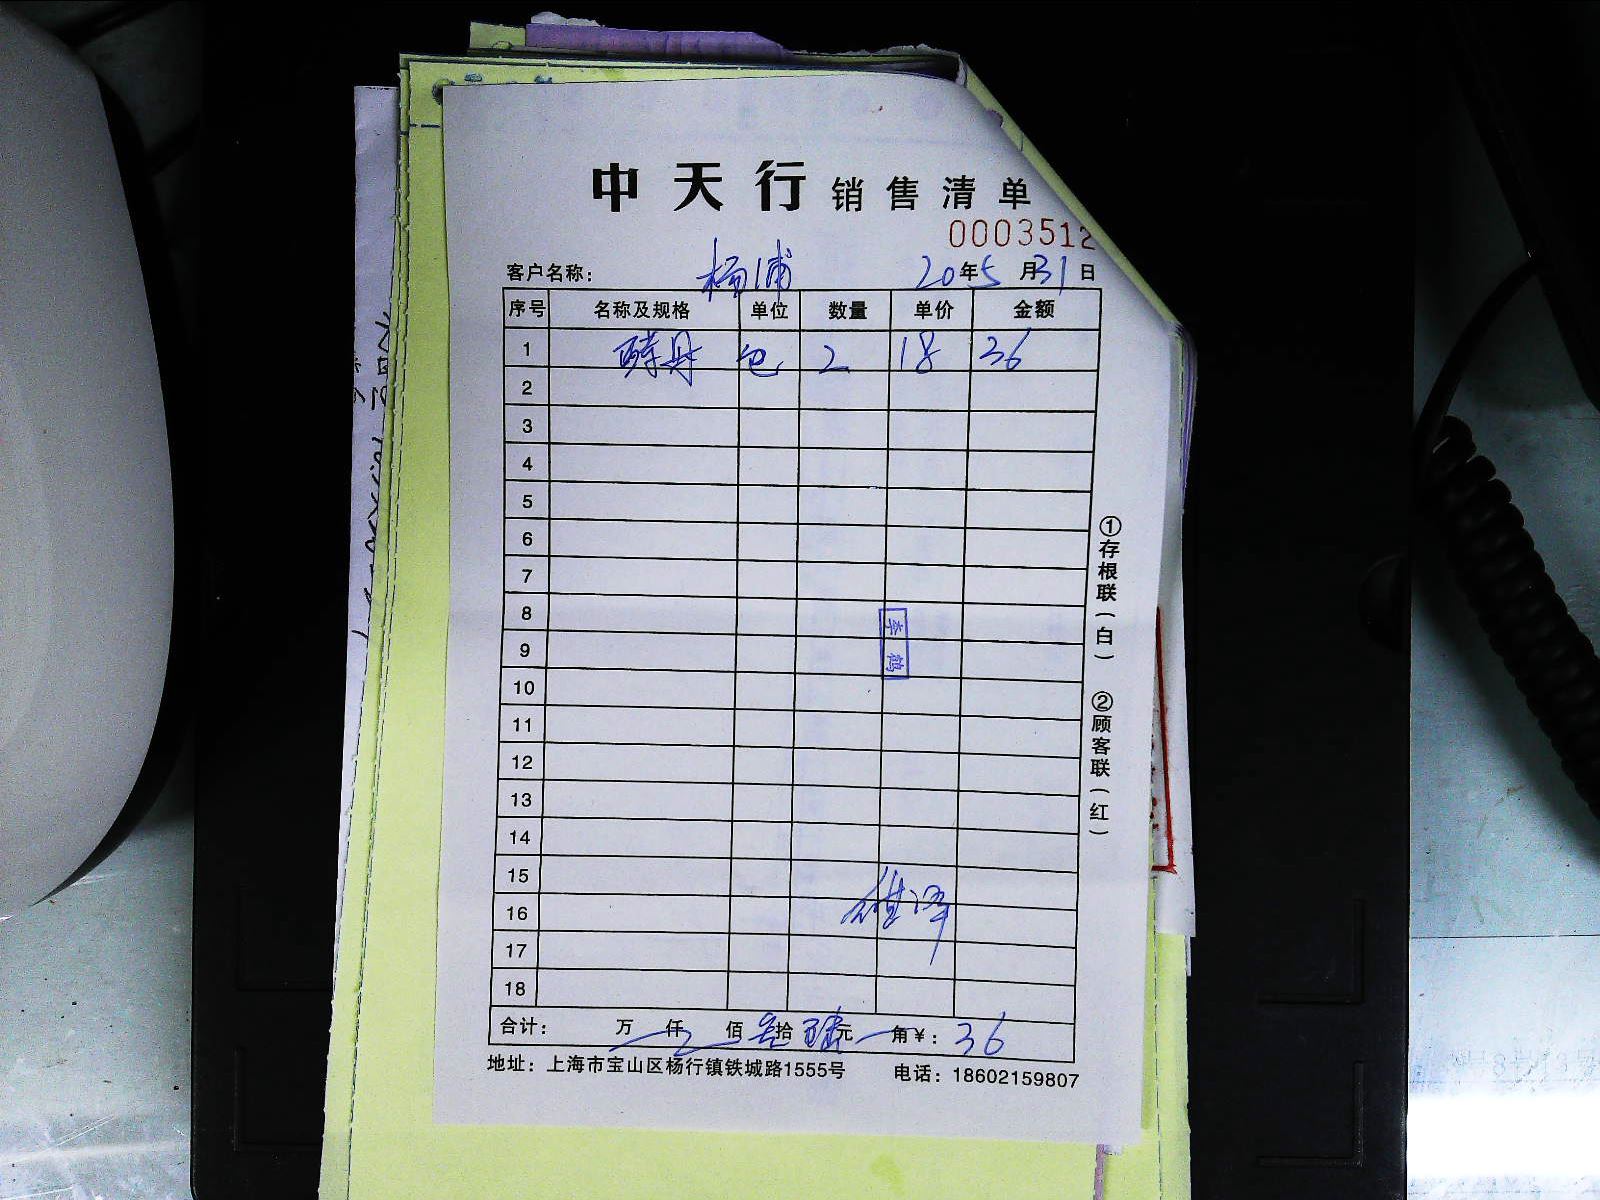 中天行销售清单
0003512
客户名称: 杨浦 20年5月31日
序号 名称及规格 单位 数量 单价 金额
1 酵母 包 2 18 36
2
3
4
5
6
7
8
9
10
11
12
13
14
15
16
17
18
李鹤
合计: 万 仟 佰 叁拾 陆元 角¥: 36
地址: 上海市宝山区杨行镇铁城路1555号 电话: 18602159807
①存根联(白) ②顾客联(红)